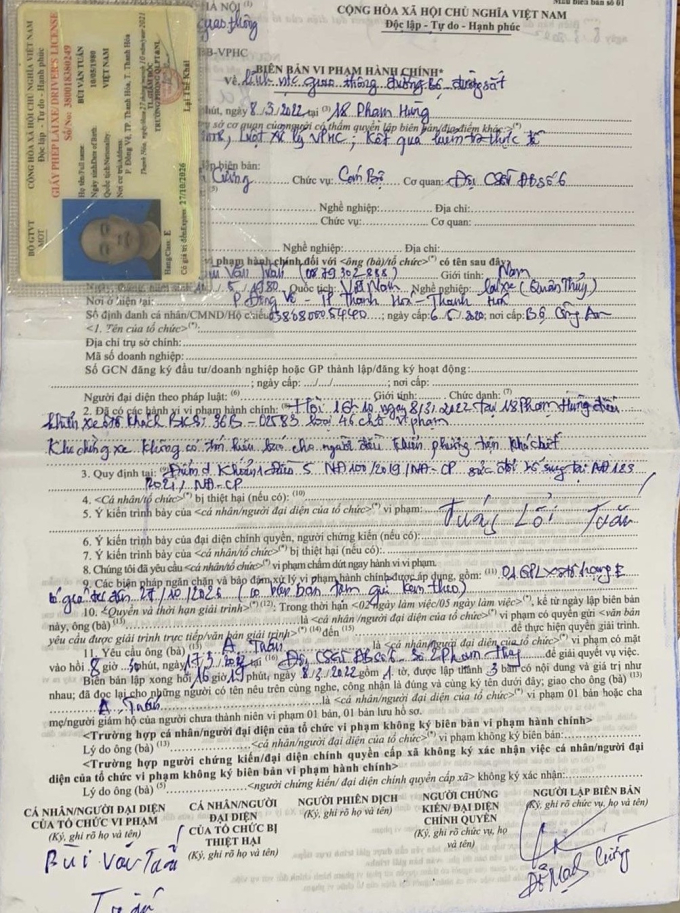 Mẫu biên bản số 01
HÀ NỘI (1)
CỘNG HÒA XÃ HỘI CHỦ NGHĨA VIỆT NAM
Độc lập - Tự do - Hạnh phúc
giao thông
/BB-VPHC
BỘ GTVT
MOT
CỘNG HÒA XÃ HỘI CHỦ NGHĨA VIỆT NAM
Độc lập - Tự do - Hạnh phúc
GIẤY PHÉP LÁI XE/ DRIVER'S LICENSE
Số/No: 380018380249
Họ tên/Full name: BÙI VĂN TUẤN
Ngày sinh/Date of Birth: 10/05/1980
Quốc tịch/Nationality: VIỆT NAM
Nơi cư trú/Address:
P. Đông Vệ, TP. Thanh Hóa, T. Thanh Hóa
Hạng/Class: E
Có giá trị đến/Expires: 27/10/2026
BIÊN BẢN VI PHẠM HÀNH CHÍNH*
Về lĩnh vực giao thông đường bộ, đường sắt
phút, ngày 8/3/2022 tại (3) 18 Phạm Hùng
trụ sở cơ quan của người có thẩm quyền lập biên bản/địa điểm khác> (*):
Luật Xử lý VPHC; Kết quả kiểm tra thực tế
lập biên bản:
Cường Chức vụ: Cán Bộ Cơ quan: Đội CSGT ĐB số 6
Nghề nghiệp: Địa chỉ:
Chức vụ: Cơ quan:
Nghề nghiệp: Địa chỉ:
vi phạm hành chính đối với <ông (bà)/tổ chức> (*) có tên sau đây:
Giới tính: Nam
/5/1980 Quốc tịch: Việt Nam Nghề nghiệp: lái xe
Nơi ở hiện tại: P Đông Vệ - TP Thanh Hóa - Thanh Hóa
Số định danh cá nhân/CMND/Hộ chiếu: ngày cấp: 6/5/2020; nơi cấp: Bộ Công An
<1. Tên của tổ chức> (*):
Địa chỉ trụ sở chính:
Mã số doanh nghiệp:
Số GCN đăng ký đầu tư/doanh nghiệp hoặc GP thành lập/đăng ký hoạt động:
; ngày cấp: .../.../...; nơi cấp:
Người đại diện theo pháp luật: (6) Giới tính: Chức danh: (7)
2. Đã có các hành vi vi phạm hành chính: (8) Hồi 16h10 ngày 8/3/2022 tại 18 Phạm Hùng điều
khiển xe ô tô khách BKS: 36B - 02583 loại 46 chỗ vi phạm
Khi dừng xe không có tín hiệu báo cho người điều khiển phương tiện khác biết
3. Quy định tại: (9) Điểm d Khoản 1 Điều 5 NĐ 100/2019/NĐ-CP sửa đổi bổ sung tại NĐ 123
2021/NĐ-CP
4. <Cá nhân/tổ chức> (*) bị thiệt hại (nếu có): (10)
5. Ý kiến trình bày của <cá nhân/người đại diện của tổ chức> (*) vi phạm: Tuấn
6. Ý kiến trình bày của đại diện chính quyền, người chứng kiến (nếu có):
7. Ý kiến trình bày của <cá nhân/tổ chức> (*) bị thiệt hại (nếu có):
8. Chúng tôi đã yêu cầu <cá nhân/tổ chức> (*) vi phạm chấm dứt ngay hành vi vi phạm.
9. Các biện pháp ngăn chặn và bảo đảm xử lý vi phạm hành chính được áp dụng, gồm: (11) 01 GPLX số hạng E
có giá trị đến 27/10/2026 (có biên bản tạm giữ kèm theo)
10. <Quyền và thời hạn giải trình> (*) (12). Trong thời hạn <02 ngày làm việc/05 ngày làm việc>, kể từ ngày lập biên bản
này, ông (bà) (13) là <cá nhân/đại diện của tổ chức> (*) vi phạm có quyền gửi <văn bản
yêu cầu được giải trình trực tiếp/văn bản giải trình> (*) (14) đến (15) để thực hiện quyền giải trình.
11. Yêu cầu ông (bà) (13) A. Tuấn là <cá nhân/đại diện của tổ chức> (*) vi phạm có mặt
vào hồi 8 giờ 30 phút, ngày 17/3/2022 tại (16) Đội CSGT ĐB số 6 - Số 2 Phạm Hùng để giải quyết vụ việc.
Biên bản lập xong hồi 16 giờ 19 phút, ngày 8/3/2022 gồm 1 tờ, được lập thành 3 bản có nội dung và giá trị như
nhau; đã đọc lại cho những người có tên nêu trên cùng nghe, công nhận là đúng và cùng ký tên dưới đây; giao cho ông (bà) (13)
A. Tuấn là <cá nhân/đại diện của tổ chức> (*) vi phạm 01 bản hoặc cha
mẹ/người giám hộ của người chưa thành niên vi phạm 01 bản, 01 bản lưu hồ sơ.
<Trường hợp cá nhân/đại diện của tổ chức vi phạm không ký biên bản vi phạm hành chính>
Lý do ông (bà) (13) <cá nhân/đại diện của tổ chức> (*) vi phạm không ký biên bản:
<Trường hợp người chứng kiến/đại diện chính quyền cấp xã không xác nhận việc cá nhân/người đại
diện của tổ chức vi phạm không ký biên bản vi phạm hành chính>
Lý do ông (bà) (5) <người chứng kiến/ đại diện chính quyền cấp xã> không xác nhận:
CÁ NHÂN/NGƯỜI ĐẠI DIỆN CỦA TỔ CHỨC VI PHẠM
(Ký, ghi rõ họ và tên)
CÁ NHÂN/NGƯỜI ĐẠI DIỆN CỦA TỔ CHỨC BỊ THIỆT HẠI
(Ký, ghi rõ họ và tên)
NGƯỜI PHIÊN DỊCH
(Ký, ghi rõ họ và tên)
NGƯỜI CHỨNG KIẾN/ ĐẠI DIỆN CHÍNH QUYỀN
(Ký, ghi rõ chức vụ, họ và tên)
NGƯỜI LẬP BIÊN BẢN
(Ký, ghi rõ chức vụ, họ và tên)
Bùi Văn Tuấn
Tuấn
Đỗ Mạnh Cường